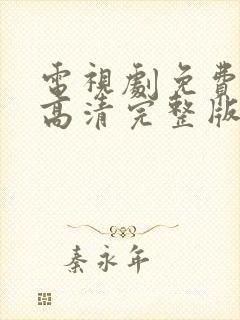 電視劇免費
高清完整版
秦永年